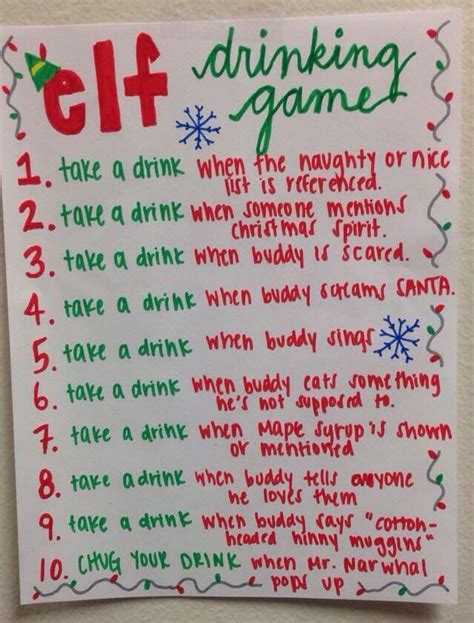 elf drinking
game
1. take a drink when the naughty or nice
list is referenced.
2. take a drink when someone mentions
christmas spirit.
3. take a drink when buddy is scared.
4. take a drink when buddy screams SANTA.
5. take a drink when buddy sings
6. take a drink when buddy eats something
he's not supposed to.
7. take a drink when Maple syrup is shown
or mentioned
8. take a drink when buddy tells everyone
he loves them
9. take a drink when buddy says "cotton-
headed hinny muggins"
10. CHUG YOUR DRINK when Mr. Narwhal
pops up